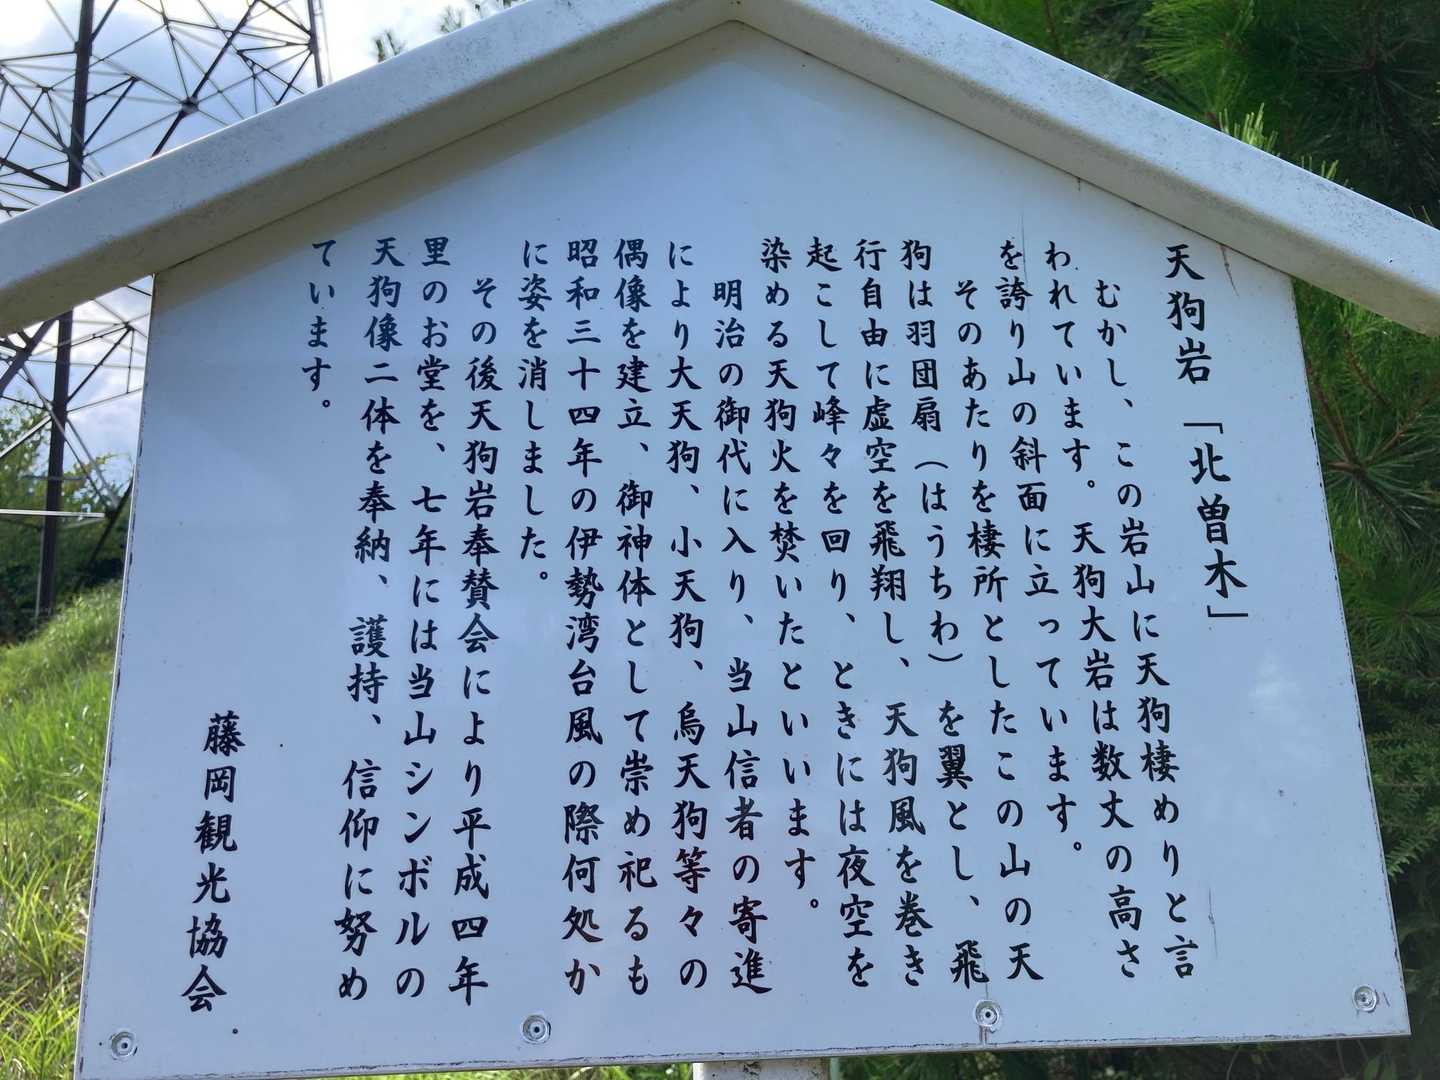 天狗岩「北曽木」
むかし、この岩山に天狗棲めりと言
われています。天狗大岩は数丈の高さ
を誇り山の斜面に立っています。
そのあたりを棲所としたこの山の天
狗は羽団扇（はうちわ）を翼とし、飛
行自由に虚空を飛翔し、天狗風を巻き
起こして峰々を回り、ときには夜空を
染める天狗火を焚いたといいます。
明治の御代に入り、当山信者の寄進
により大天狗、小天狗、烏天狗等々の
偶像を建立、御神体として崇め祀るも
昭和三十四年の伊勢湾台風の際何処か
に姿を消しました。
その後天狗岩奉賛会により平成四年
里のお堂を、七年には当山シンボルの
天狗像二体を奉納、護持、信仰に努め
ています。
藤岡観光協会